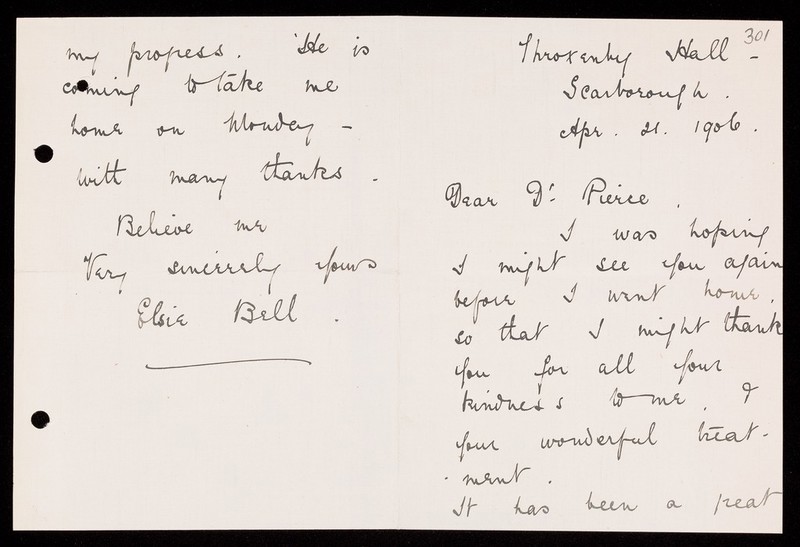 301
Throxenby Hall -
Scarborough.
Apr. 21. 1906.
Dear Dr. Pierce,
I was hoping
I might see you again
before I went home,
so that I might thank
you for all your
kindness to me, &
your wonderful treat-
ment.
It has been a great
my progress. He is
coming to take me
home on Monday -
With many thanks.
Believe me
Very sincerely yours
Elsie Bell.